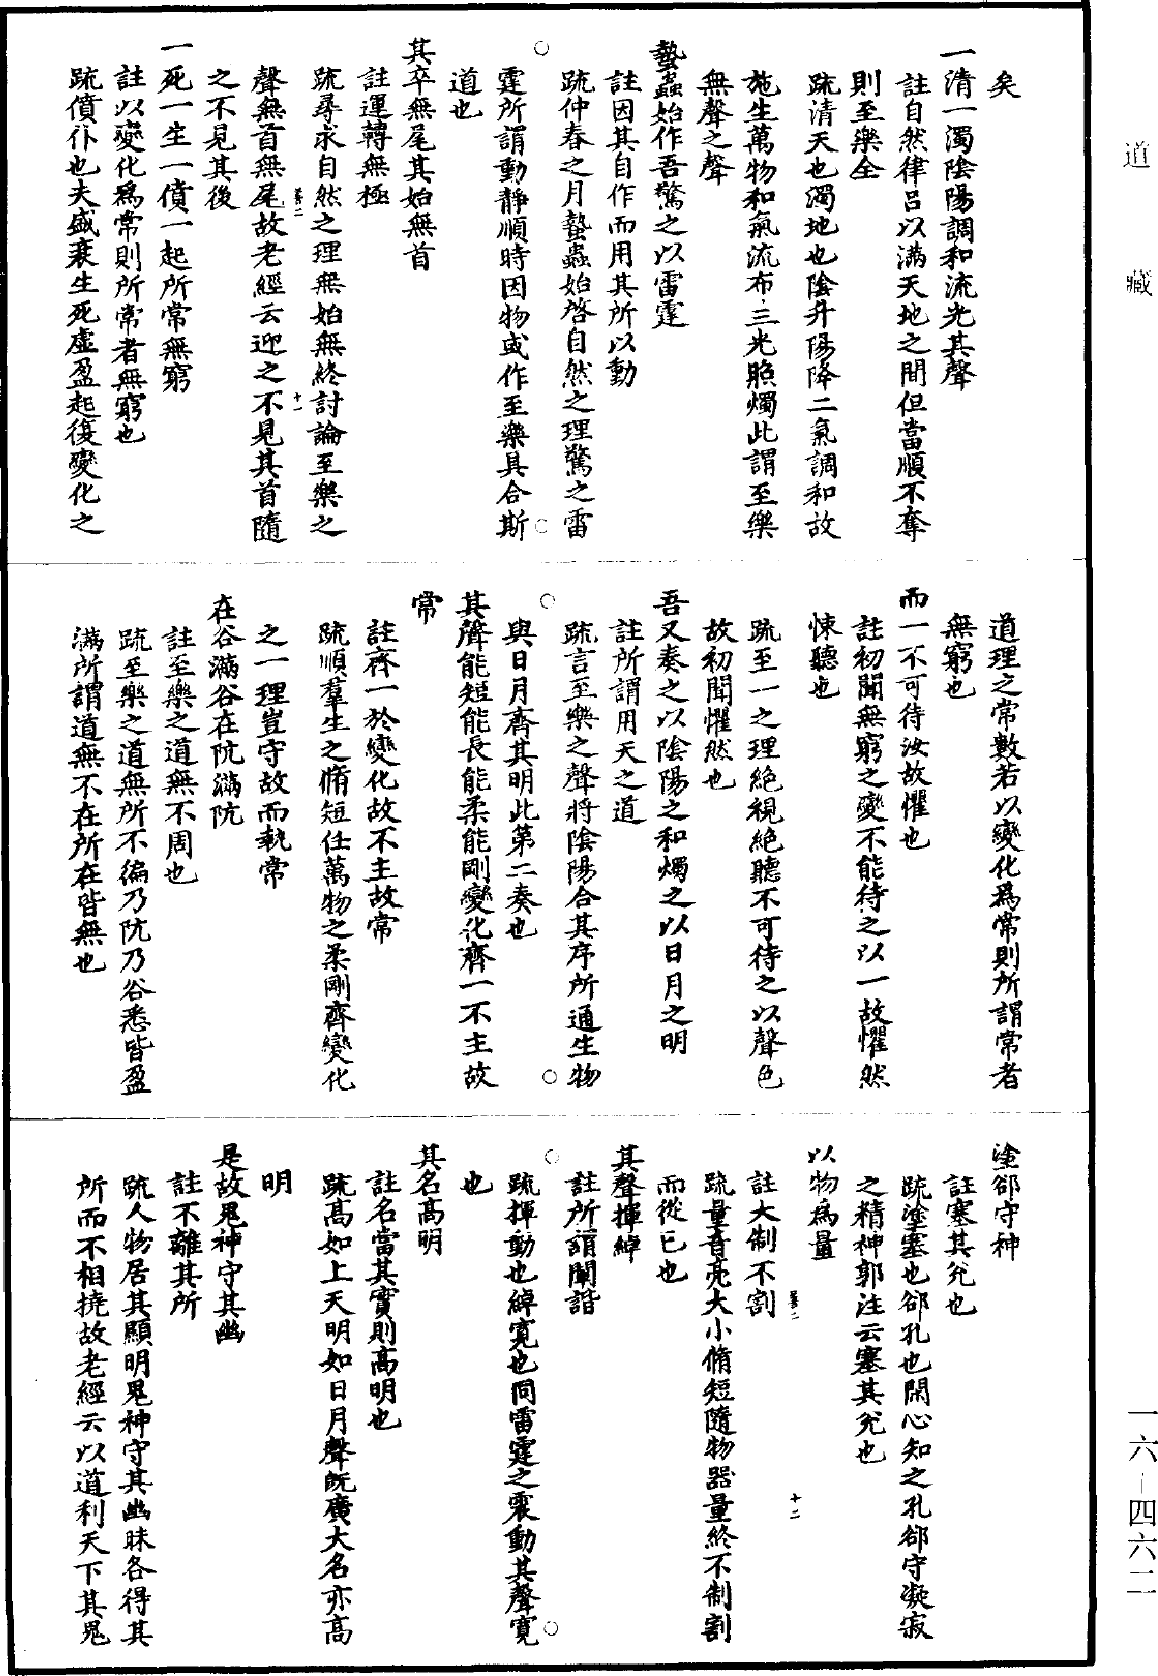 矣
一清一濁陰陽調和流光其聲
註自然律呂以滿天地之間但當順不奪
則至樂全
疏清天也濁地也陰升陽降二氣調和故
施生萬物和氣流布三光照燭此謂至樂
無聲之聲
蟄蟲始作吾驚之以雷霆
註因其自作而用其所以動
疏仲春之月蟄蟲始啓自然之理驚之雷
霆所謂動靜順時因物或作至樂具合斯
道也
其卒無尾其始無首
註運轉無極
疏尋求自然之理無始無終討論至樂之
聲無首無尾故老經云迎之不見其首隨
之不見其後
一死一生一僨一起所常無窮
註以變化爲常則所常者無窮也
疏僨仆也夫盛衰生死虛盈起復變化之
道理之常數若以變化爲常則所謂常者
無窮也
而一不可待汝故懼也
註初聞無窮之變不能待之以一故懼然
悚聽也
疏至一之理絕視絕聽不可待之以聲色
故初聞懼然也
吾又奏之以陰陽之和燭之以日月之明
註所謂用天之道
疏言至樂之聲將陰陽合其序所通生物
與日月齊其明此第二奏也
其聲能短能長能柔能剛變化齊一不主故
常
註齊一於變化故不主故常
疏順羣生之脩短任萬物之柔剛齊變化
之一理豈守故而執常
在谷滿谷在阬滿阬
註至樂之道無不周也
疏至樂之道無所不徧乃阬乃谷悉皆盈
滿所謂道無不在所在皆無也
塗郤守神
註塞其兊也
疏塗塞也郤孔也閑心知之孔郤守凝寂
之精神郭注云塞其兊也
以物爲量
註大制不割
疏量音亮大小脩短隨物器量終不制割
而從已也
其聲揮綽
註所謂闡諧
疏揮動也綽寬也同雷霆之震動其聲寬
也
其名高明
註名當其實則高明也
疏高如上天明如日月聲旣廣大名亦高
明
是故鬼神守其幽
註不離其所
疏人物居其顯明鬼神守其幽昧各得其
所而不相撓故老經云以道利天下其鬼
道藏
一六—四六二
十一
十二